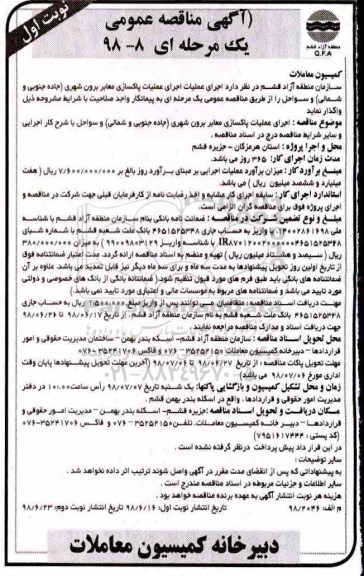 نوبت اول
(آگهی مناقصه عمومی
یک مرحله ای ۸- ۹۸
منطقه آزاد قشم
Q.F.A
کمیسیون معاملات
سازمان منطقه آزاد قشم در نظر دارد اجرای عملیات اجرای عملیات پاکسازی معابر برون شهری (جاده جنوبی و
شمالی) و سواحل را از طریق مناقصه عمومی یک مرحله ای به پیمانکار واجد صلاحیت با شرایط مشروحه ذیل
واگذار نماید
موضوع مناقصه : اجرای عملیات پاکسازی معابر برون شهری (جاده جنوبی و شمالی) و سواحل با شرح کار اجرایی
و سایر شرایط مناقصه درج در اسناد مناقصه .
محل و اجرا پروژه : استان هرمزگان - جزیره قشم
مدت زمان اجرای کار: ۳۶۵ روز می باشد.
مبلغ برآورد کار: میزان برآورد عملیات اجرایی بر مبنای برآورد روز بالغ بر ۷/۶۰۰/۰۰۰/۰۰۰ ریال ( هفت
میلیارد و ششصد میلیون ریال ) می باشد.
استاندارد اجرای کار : سابقه اجرای کار مشابه و اخذ رضایت نامه از کارفرمایان قبلی جهت شرکت در مناقصه و
اجرای پروژه فوق برای مناقصه گران الزامی است.
مبلغ و نوع تضمین شرکت در مناقصه : ضمانت نامه بانکی بنام سازمان منطقه آزاد قشم با شناسه
ملی ۱۴۰۰۲۸۶۱۶۹۸ یا واریز به حساب جاری ۴۶۵۱۵۲۵۳۴۸ بانک ملت شعبه قشم با شماره شبای
با شناسه واریز ۹۹۰۰۹۸۰۳۱۲۹ به میزان ۳۸۰/۰۰۰/۰۰۰
ریال ( سیصد و هشتاد میلیون ریال ) تهیه و منضم به اسناد مناقصه ارائه گردد. مدت اعتبار ضمانتنامه فوق
از تاریخ اولین روز تحویل پیشنهادها به مدت سه ماه و برای سه ماه دیگر نیز قابل تمدید می باشد. علاوه بر آن
ضمانتنامه های بانکی باید طبق فرم های مورد قبول تنظیم شود.( ضمانتنامه بانکی از بانک های خصوصی و دولتی
مورد تایید می باشد و ضمانتنامه های مربوط به موسسات مالی و اعتباری مورد تایید نمی باشد)
مهلت دریافت اسناد مناقصه : متقاضیان می توانند پس از واریز مبلغ ۱/۵۰۰/۰۰۰ ریال به حساب جاری
۴۶۵۱۵۲۵۳۴۸ بانک ملت شعبه قشم به نام سازمان منطقه آزاد قشم . از تاریخ ۹۸/۰۶/۱۷ تا ۹۸/۰۶/۲۶
جهت دریافت اسناد و مدارک مناقصه مراجعه نمایند
محل تحویل اسناد مناقصه : سازمان منطقه آزاد قشم- اسکله بندر بهمن – ساختمان مدیریت حقوقی و امور
قراردادها – دبیرخانه کمیسیون معاملات ۳۵۲۵۲۱۵۰ – ۰۷۶ و فاکس ۳۵۲۴۱۷۰۶-۰۷۶
مهلت تحویل پاکات مناقصه : از تاریخ ۹۸/۰۶/۲۷ تا ۹۸/۰۷/۰۶ (آخرین مهلت تحویل پیشنهادها پایان وقت
اداری مورخ ۹۸/۰۷/۰۶ می باشد)
زمان و محل تشکیل کمیسیون و بازگشایی پاکتها: یک شنبه تاریخ ۹۸/۰۷/۰۷ رأس ساعت ۱۰:۰۰ در دفتر
مدیریت امور حقوقی و قراردادها، و واقع در اسکله بندر بهمن قشم .
مکان دریافت و تحویل اسناد مناقصه :جزیره قشم- اسکله بندر بهمن – مدیریت امور حقوقی و
قراردادها – دبیر خانه کمیسیون معاملات. تلفن۳۵۲۵۲۱۵۰ – ۰۷۶ و فاکس ۳۵۲۴۱۷۰۶-۰۷۶
(کد پستی : ۷۹۵۱۶۱۷۴۴۴)
در این قرار داد پیش پرداخت درنظر گرفته نشده است .
سایر توضیحات :
به پیشنهاداتی که پس از انقضای مدت مقرر در آگهی واصل شوند ترتیب اثر داده نخواهد شد .
سایر اطلاعات و جزئیات مربوطه در اسناد مناقصه مندرج است .
هزینه هر نوبت انتشار آگهی به عهده برنده مناقصه خواهد بود .
م الف: ۹۸/۲۰۴۶ تاریخ انتشار نوبت اول: ۹۸/۶/۱۶ تاریخ انتشار نوبت دوم: ۹۸/۶/۲۳
دبیرخانه کمیسیون معاملات